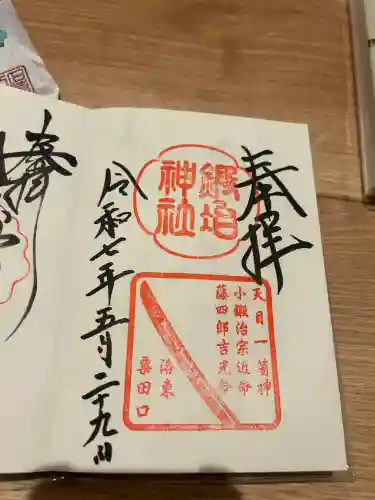 奉拝
鍛冶神社
天目一箇神
小鍛冶宗近命
藤四郎吉光命
洛東
粟田口
令和七年五月二十九日
奉